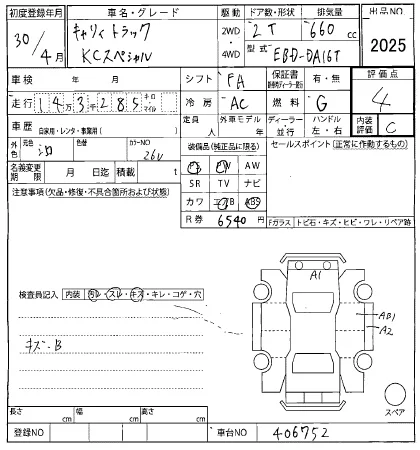 初度登録年月 車名・グレード 駆動 ドア数・形状 排気量 出品NO
30/4月 キャリィトラック 2WD・4WD 2 T 660cc 2025
KCスペシャル 型式 EBD-DA16T
車検 年 月 シフト FA 保証書 有・無 評価点
走行 14万3千285キロ・マイル 冷房 AC 燃料 G 4
車歴 自家用・レンタ・事業用( ) 定員 人 外車モデル 年 ディーラー 並行 ハンドル 左・右 内装評価 C
外色 元色 シロ 色替 カラーNO 26U 装備品(純正品に限る) セールスポイント(正常に作動するもの)
名義変更期限 月 日迄 積載 t PS PW AW
注意事項(欠品・修復・不具合箇所および状態) SR TV ナビ
カワ エアB ABS
R券 6540円 Fガラス トビ石・キズ・ヒビ・ワレ・リペア跡
A1
検査員記入 内装 汚レ・スレ・キズ・キレ・コゲ・穴
AB1
A2
キズ・B
スペア
長さ cm 幅 cm 高さ cm
登録NO 車台NO 406752